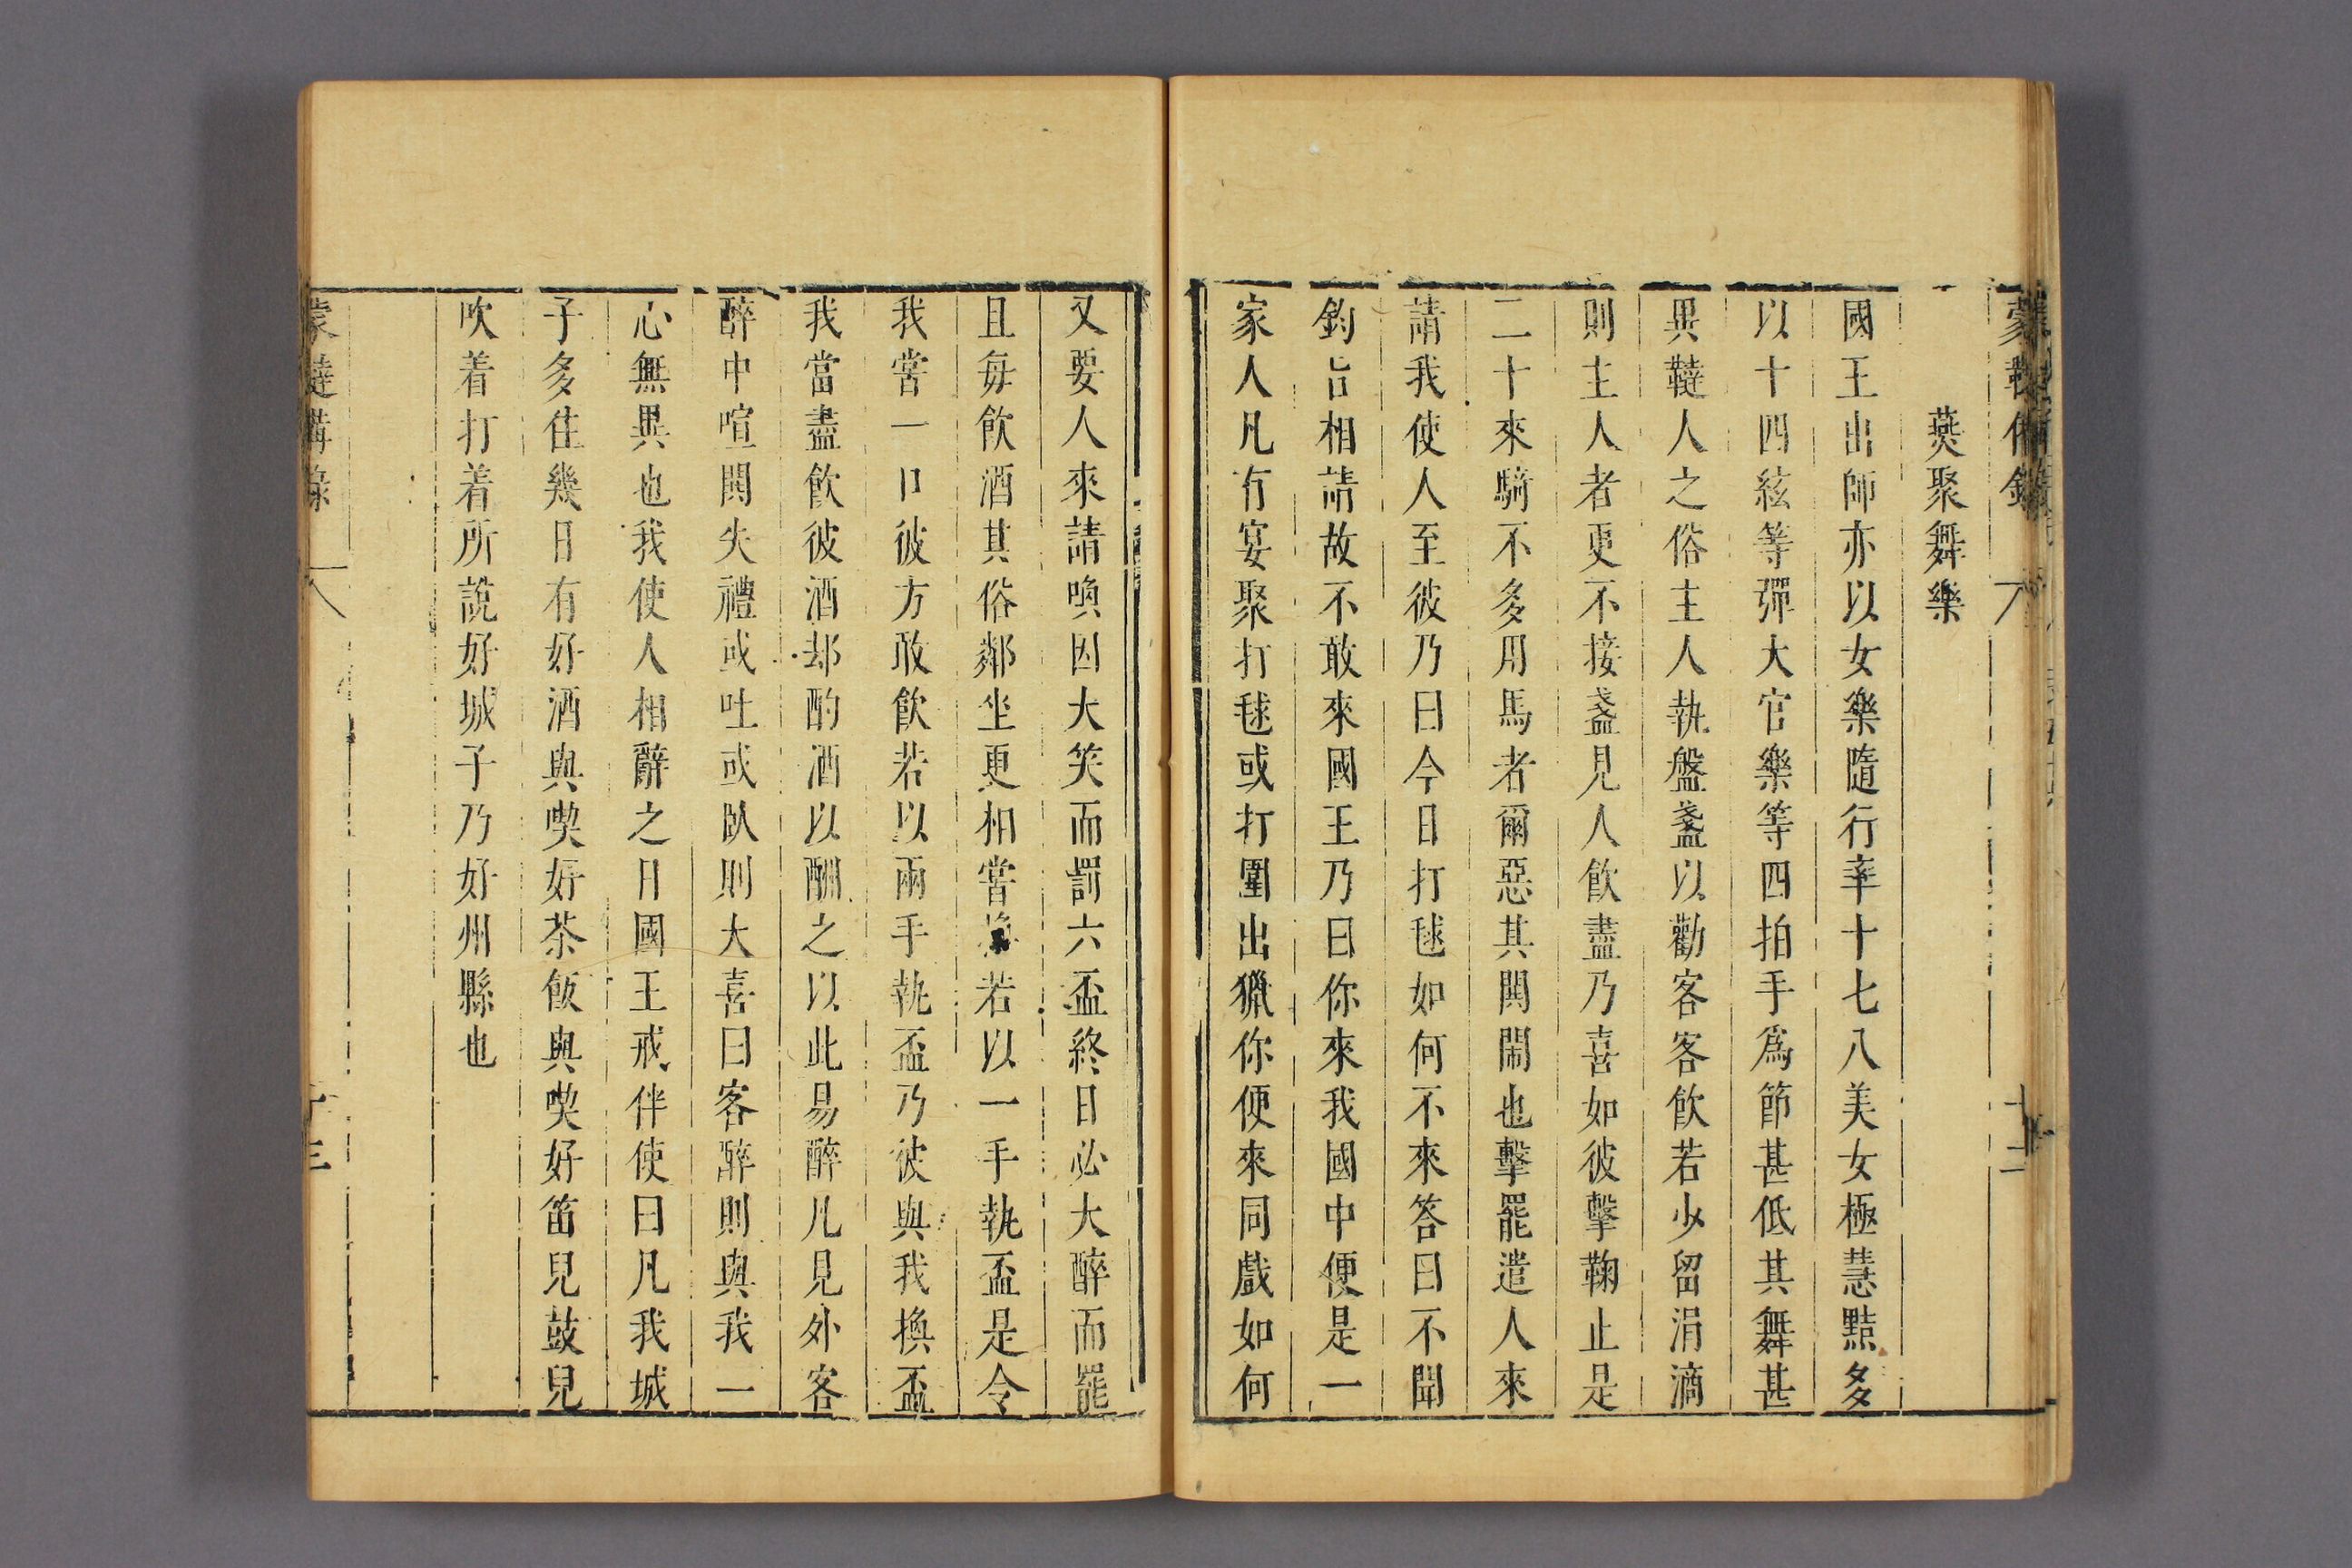 蒙韃備錄 十二
燕聚舞樂
國王出師亦以女樂隨行率十七八美女極慧黠多
以十四絃等彈大官樂等四拍手爲節甚低其舞甚
異韃人之俗主人執盤盞以勸客客飲若少留涓滴
則主人者更不接盞見人飲盡乃喜如彼擊鞠止是
二十來騎不多用馬者爾惡其閧閙也擊罷遣人來
請我使人至彼乃曰今日打毬如何不來答曰不聞
鈞旨相請故不敢來國王乃曰你來我國中便是一
家人凡有宴聚打毬或打圍出獵你便來同戲如何
又要人來請喚因大笑而罰六盃終日必大醉而罷
且每飲酒其俗鄰坐更相嘗換若以一手執盃是令
我嘗一口彼方敢飲若以兩手執盃乃彼與我換盃
我當盡飲彼酒却酌酒以酬之以此易醉凡見外客
醉中喧鬨失禮或吐或臥則大喜曰客醉則與我一
心無異也我使人相辭之日國王戒伴使曰凡我城
子多住幾日有好酒與喫好茶飯與喫好笛兒鼓兒
吹着打着所說好城子乃好州縣也